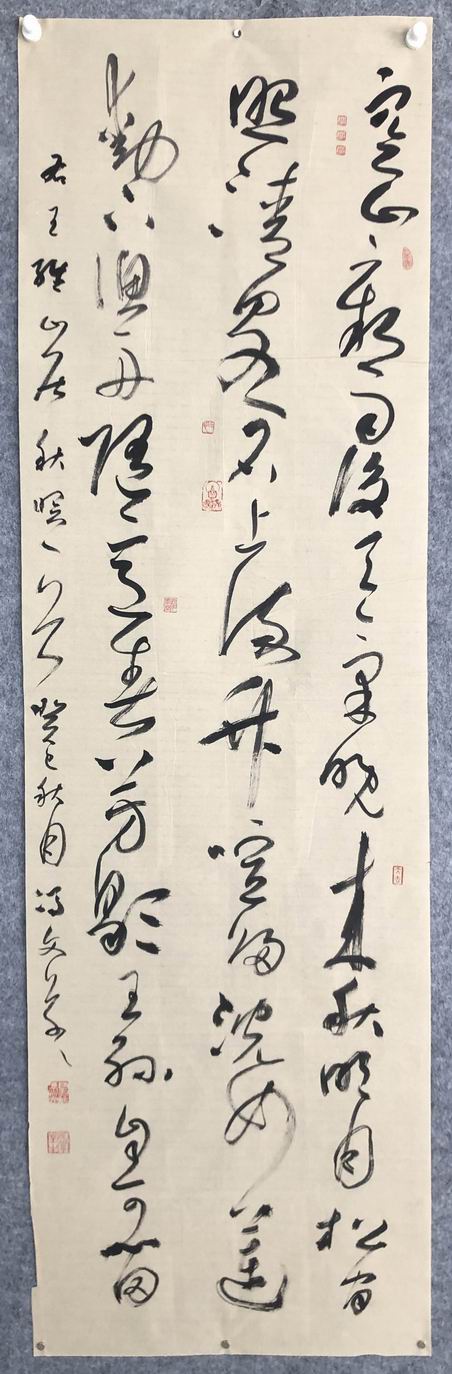 空山新雨後天氣晚來秋明月松間
照清泉石上流竹喧歸浣女蓮
動下漁舟隨意春芳歇王孫自可留
右王維山居秋暝 癸巳秋月馮文